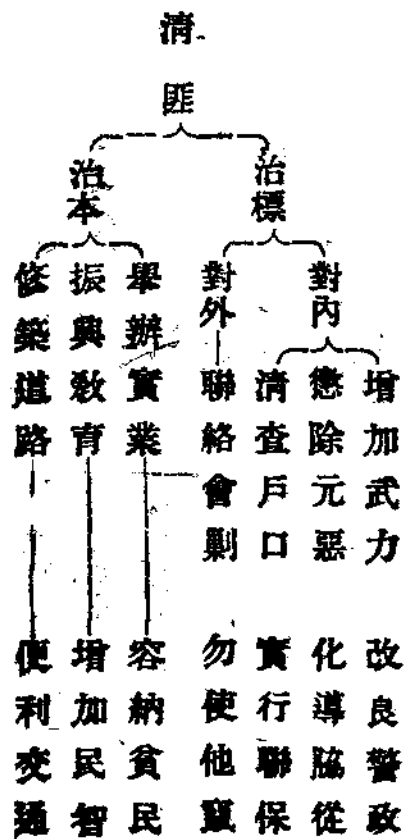 清匪
治標
對內
增加武力 改良警政
懲除元惡 化導脇從
清查戶口 實行聯保
對外
聯絡會剿 勿使他竄
治本
舉辦實業 容納貧民
振興教育 增加民智
修築道路 便利交通